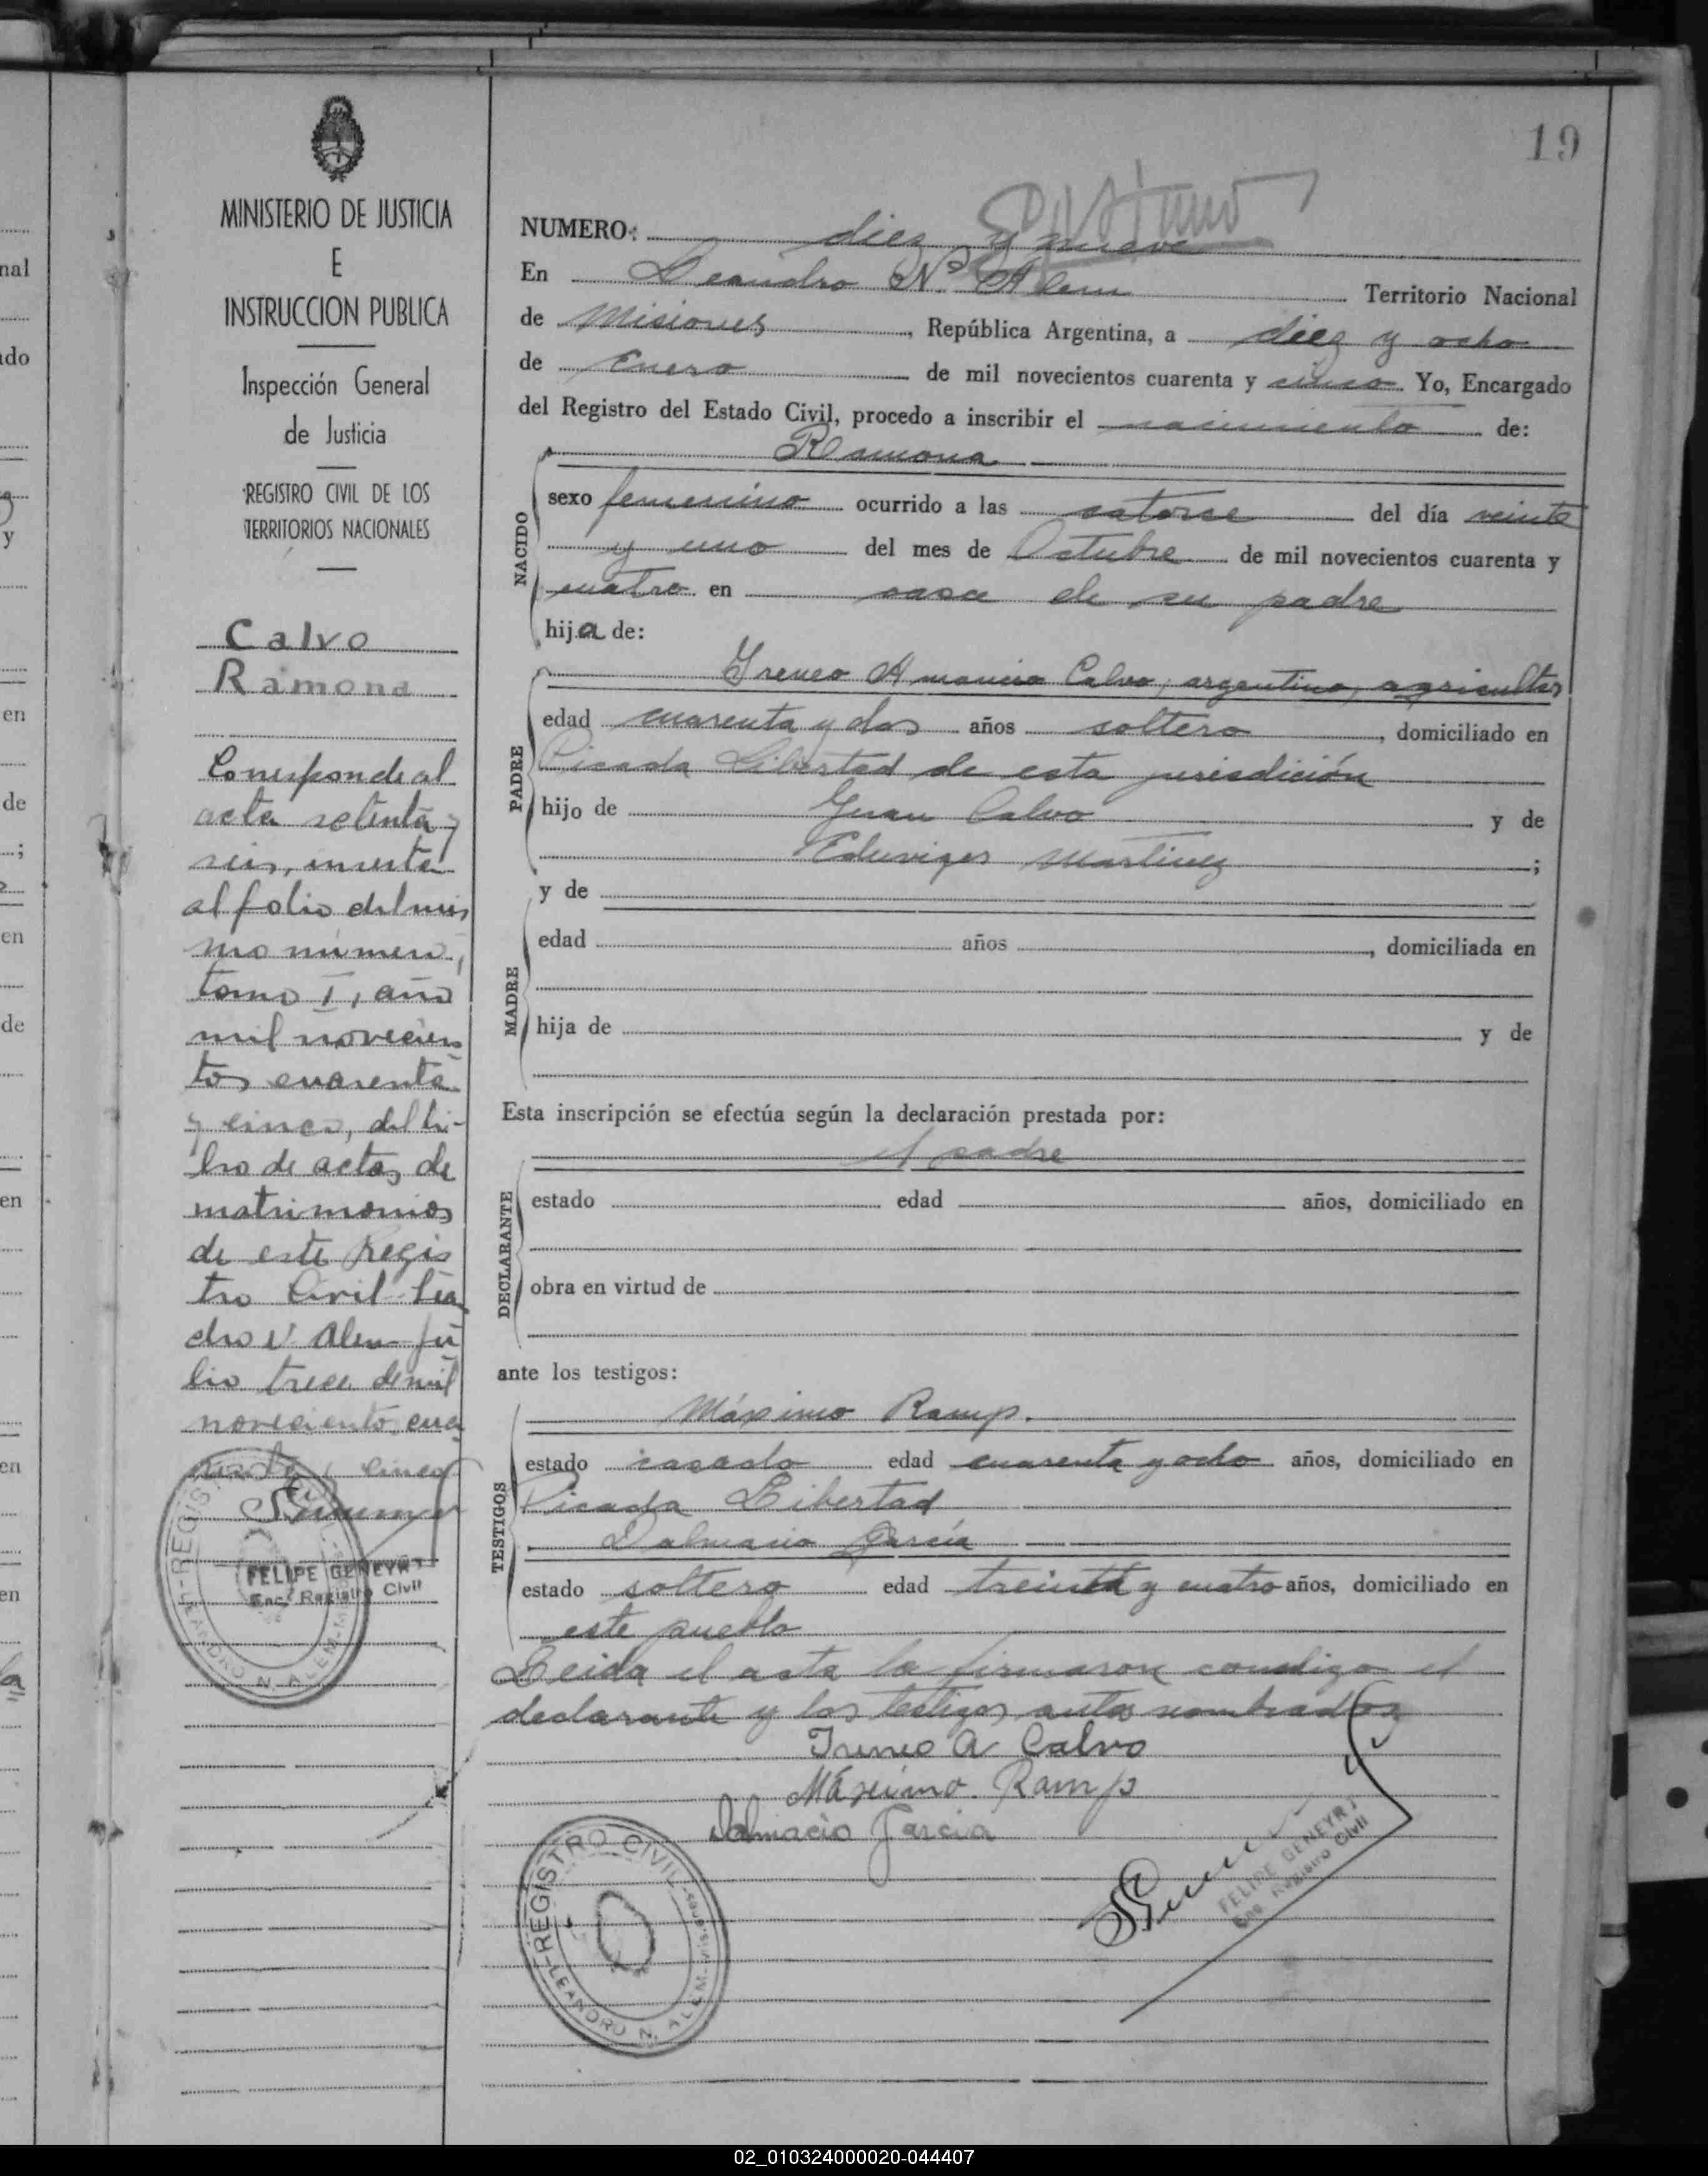 19
MINISTERIO DE JUSTICIA
E
INSTRUCCION PUBLICA
Inspección General
de Justicia
REGISTRO CIVIL DE LOS
TERRITORIOS NACIONALES
Calvo
Ramona
Corresponde al
acta setenta y
seis, inserta
al folio del mis
mo número,
tomo I, año
mil novecien
tos cuarenta
y cinco, del li-
bro de actas de
matrimonios
de este Regis
tro Civil Lean
dro N Alem Ju
lio trece de mil
novecientos cua
renta y cinco
FELIPE GENEYRT
Enc. Registro Civil
REGISTRO CIVIL
LEANDRO N. ALEM
NUMERO: diez y nueve
En Leandro N. Alem Territorio Nacional
de Misiones, República Argentina, a diez y ocho
de Enero de mil novecientos cuarenta y cinco Yo, Encargado
del Registro del Estado Civil, procedo a inscribir el nacimiento de:
Ramona
NACIDO
sexo femenino ocurrido a las catorce del día veinte
y uno del mes de Octubre de mil novecientos cuarenta y
cuatro en casa de su padre
hija de:
PADRE
Ireneo Amancio Calvo, argentino, agricultor
edad cuarenta y dos años soltero, domiciliado en
Picada Libertad de esta jurisdición
hijo de Juan Calvo y de
Eduviges Martinez ;
MADRE
y de
edad años , domiciliada en
hija de y de
Esta inscripción se efectúa según la declaración prestada por:
el padre
DECLARANTE
estado edad años, domiciliado en
obra en virtud de
ante los testigos:
TESTIGOS
Máximo Ramp.
estado casado edad cuarenta y ocho años, domiciliado en
Picada Libertad
Dalmacio García
estado soltero edad treinta y cuatro años, domiciliado en
este pueblo
Leida el acta la firmaron conmigo el
declarante y los testigos antes nombrados
Ireneo A Calvo
Máximo. Ramp
Dalmacio Garcia
FELIPE GENEYRT
Enc. Registro Civil
REGISTRO CIVIL
LEANDRO N. ALEM-Misiones
02_010324000020-044407